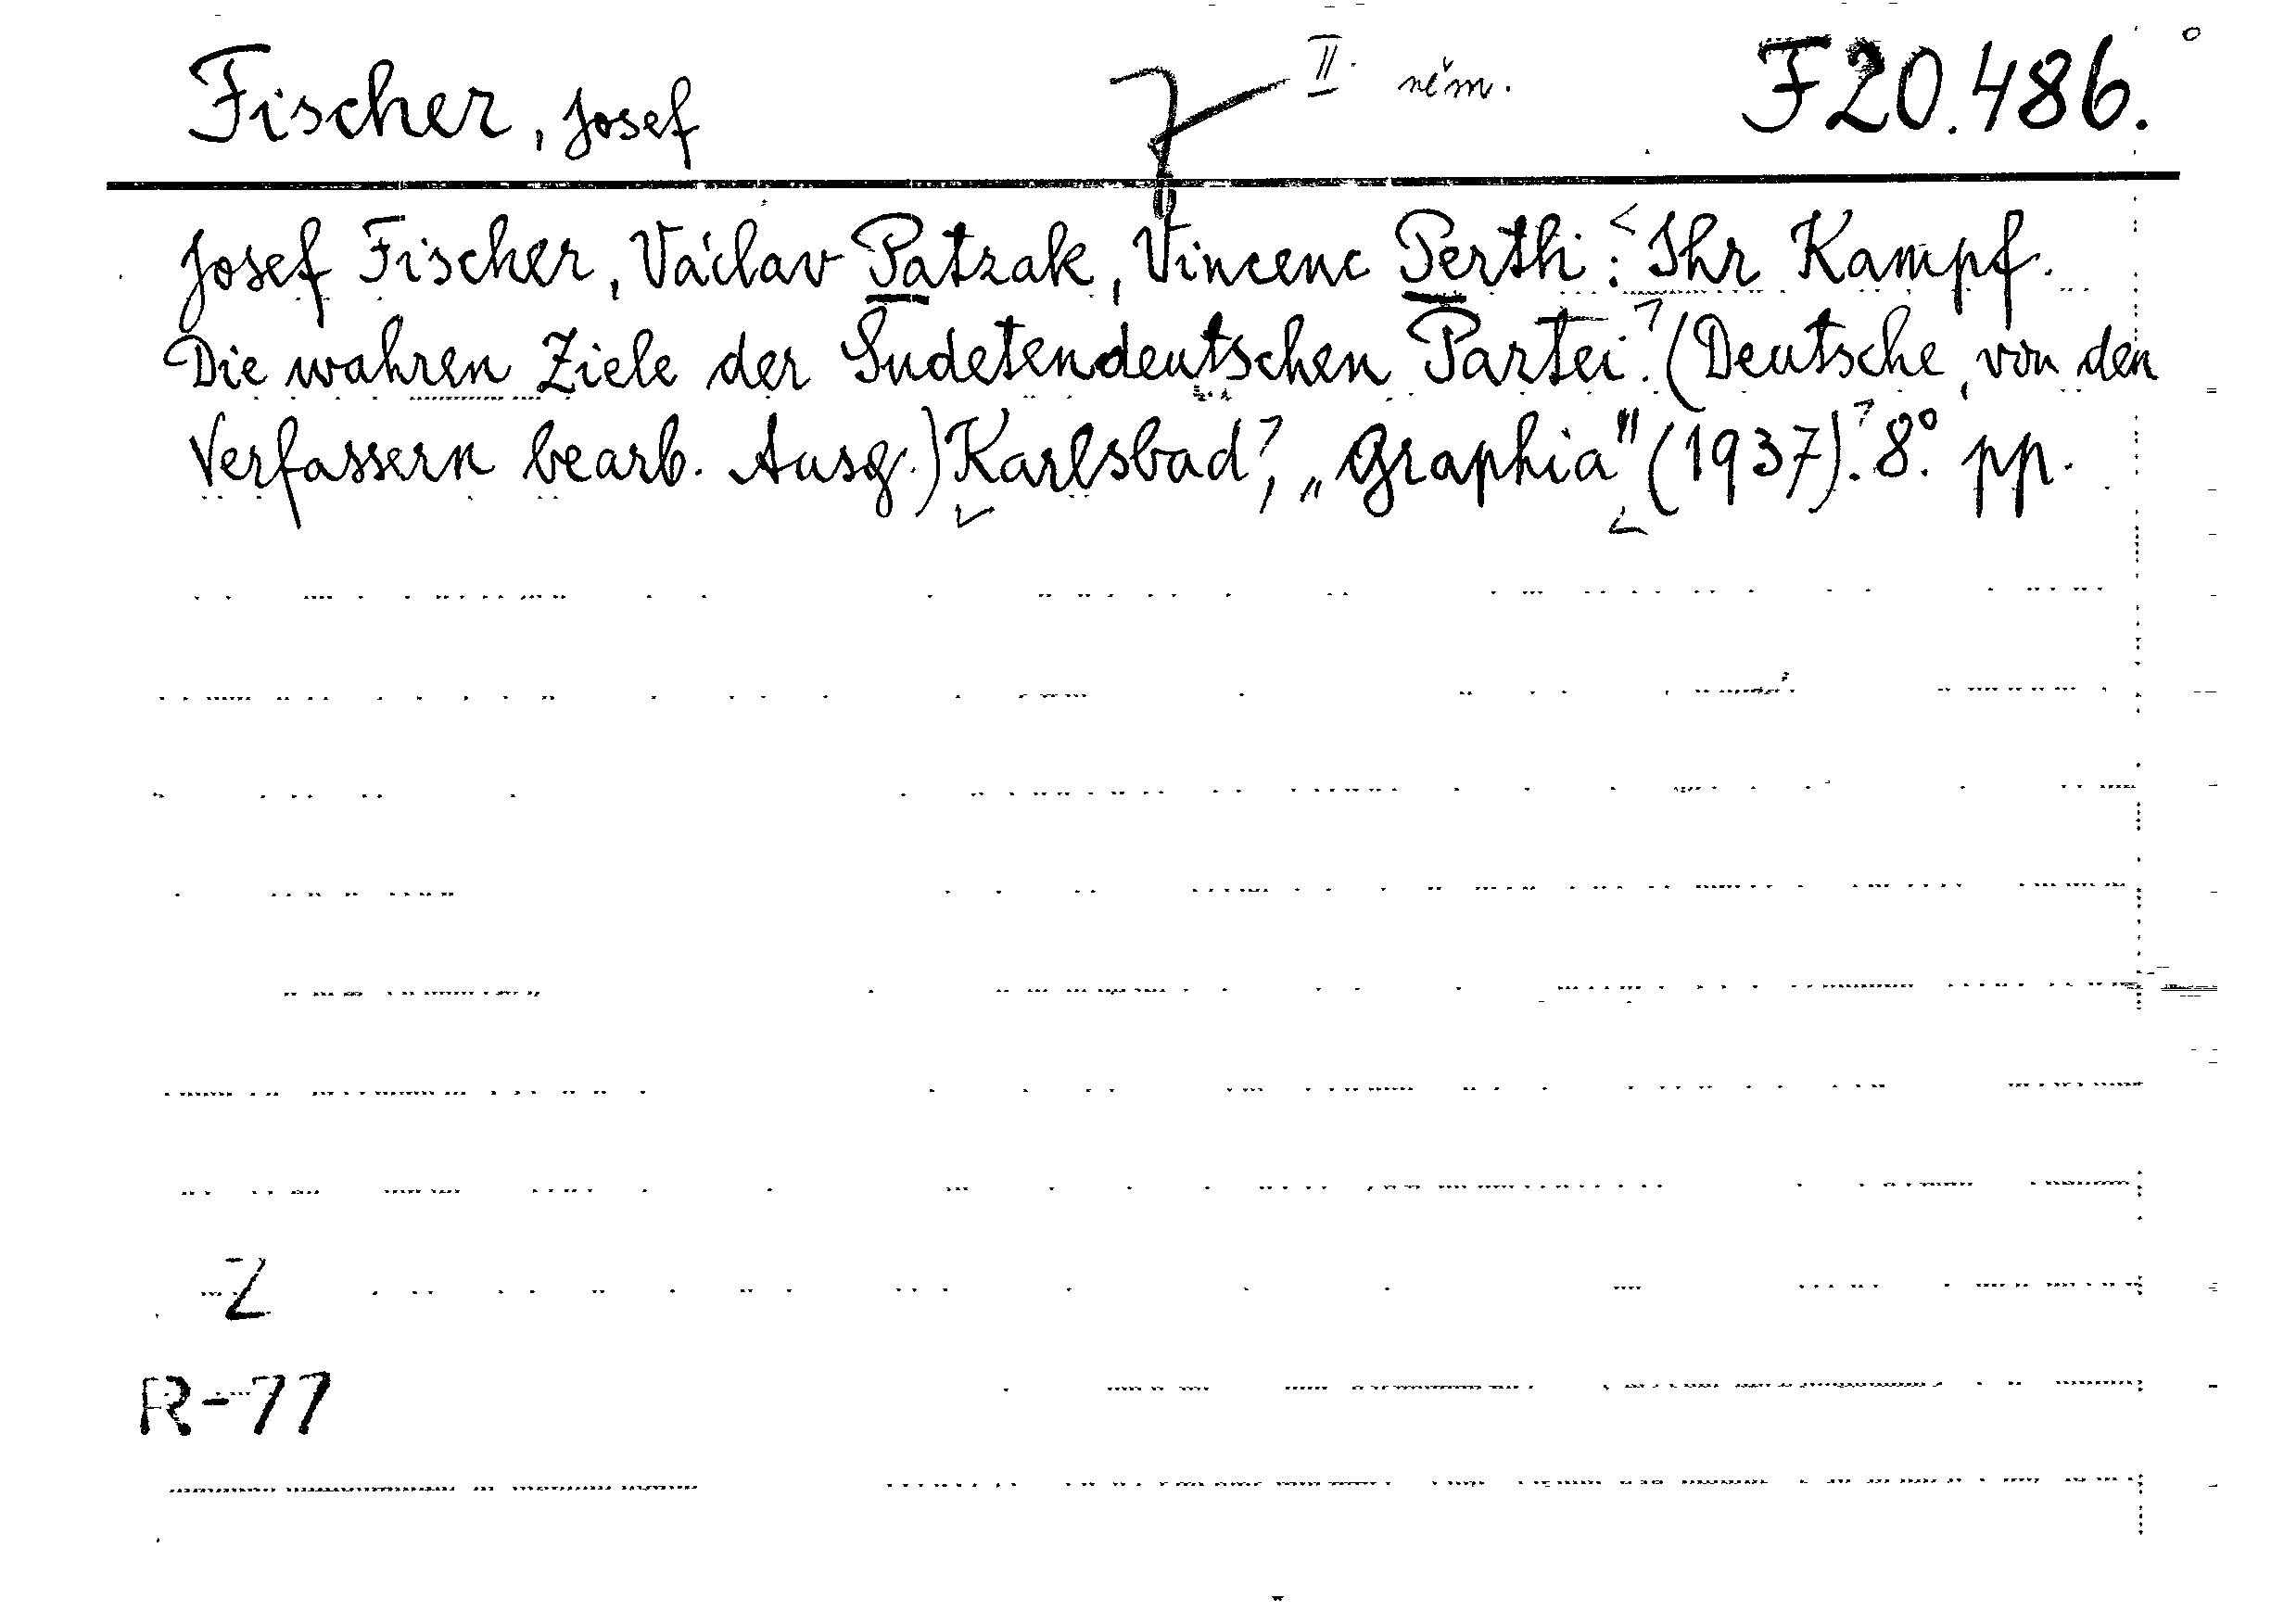 Fischer, Josef II. něm. F 20.486.
Josef Fischer, Václav Patzak, Vincenc Perth: Ihr Kampf.
Die wahren Ziele der Sudetendeutschen Partei. (Deutsche, von den
Verfassern bearb. Ausg.) Karlsbad, „Graphia" (1937). 8° pp.
Z
R-77